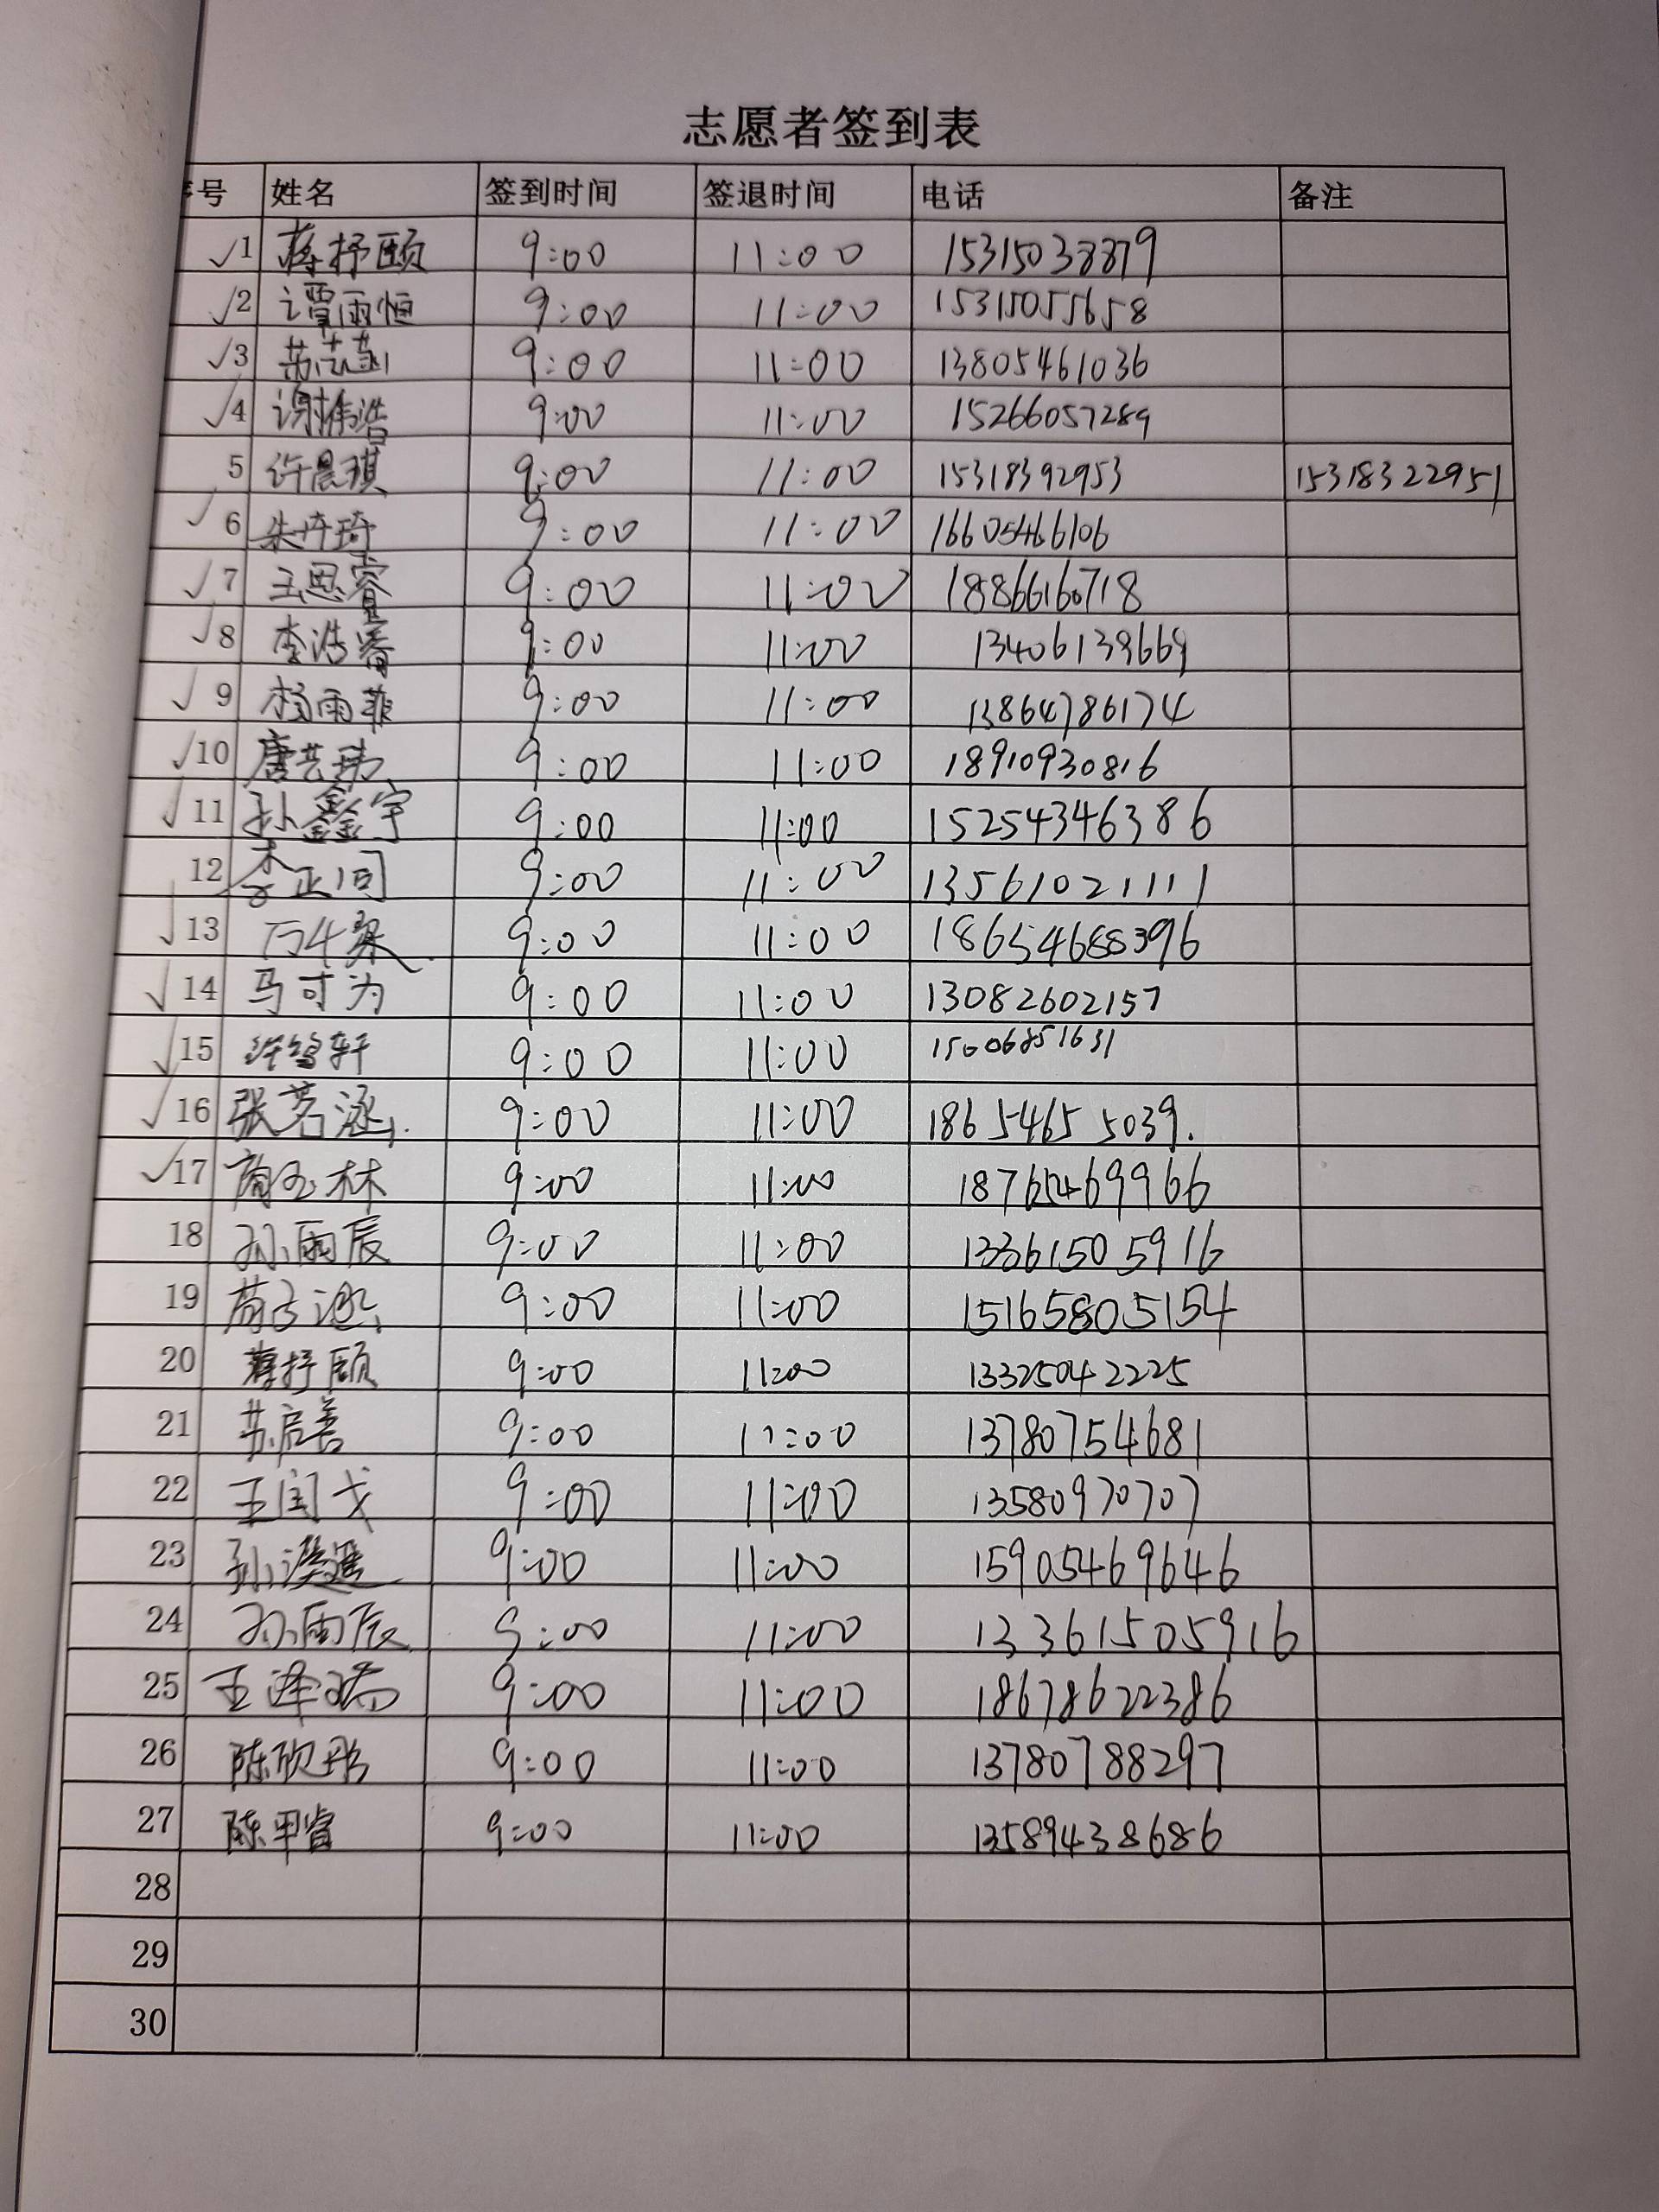 志愿者签到表
序号 姓名 签到时间 签退时间 电话 备注
√1 蒋抒颐 9:00 11:00 15315038879
√2 谭雨恒 9:00 11:00 15315055658
√3 9:00 11:00 13805461036
√4 谢楠浩 9:00 11:00 15266057289
5 许晨琪 9:00 11:00 15318392953 15318322951
√6 朱卉琦 9:00 11:00 16605466106
√7 王思睿 9:00 11:00 18866160718
√8 李浩睿 9:00 11:00 13406139669
√9 杨雨菲 9:00 11:00 13864786174
√10 唐艺玮 9:00 11:00 18910930816
√11 孙鑫宇 9:00 11:00 15254346386
12 李正同 9:00 11:00 13561021111
√13 9:00 11:00 18654688396
√14 马可为 9:00 11:00 13082602157
√15 许铭轩 9:00 11:00 15006851631
√16 张茗涵 9:00 11:00 18654655039.
√17 商玉林 9:00 11:00 18765469966
18 孙雨辰 9:00 11:00 13361505916
19 9:00 11:00 15165805154
20 蒋抒颐 9:00 11:00 13325042225
21 苏启善 9:00 11:00 13780754681
22 王闰戈 9:00 11:00 13580970707
23 9:00 11:00 15905469646
24 孙雨辰 9:00 11:00 13361505916
25 王泽瑞 9:00 11:00 18678622386
26 陈欣彤 9:00 11:00 13780788297
27 陈甲睿 9:00 11:00 13589438686
28
29
30